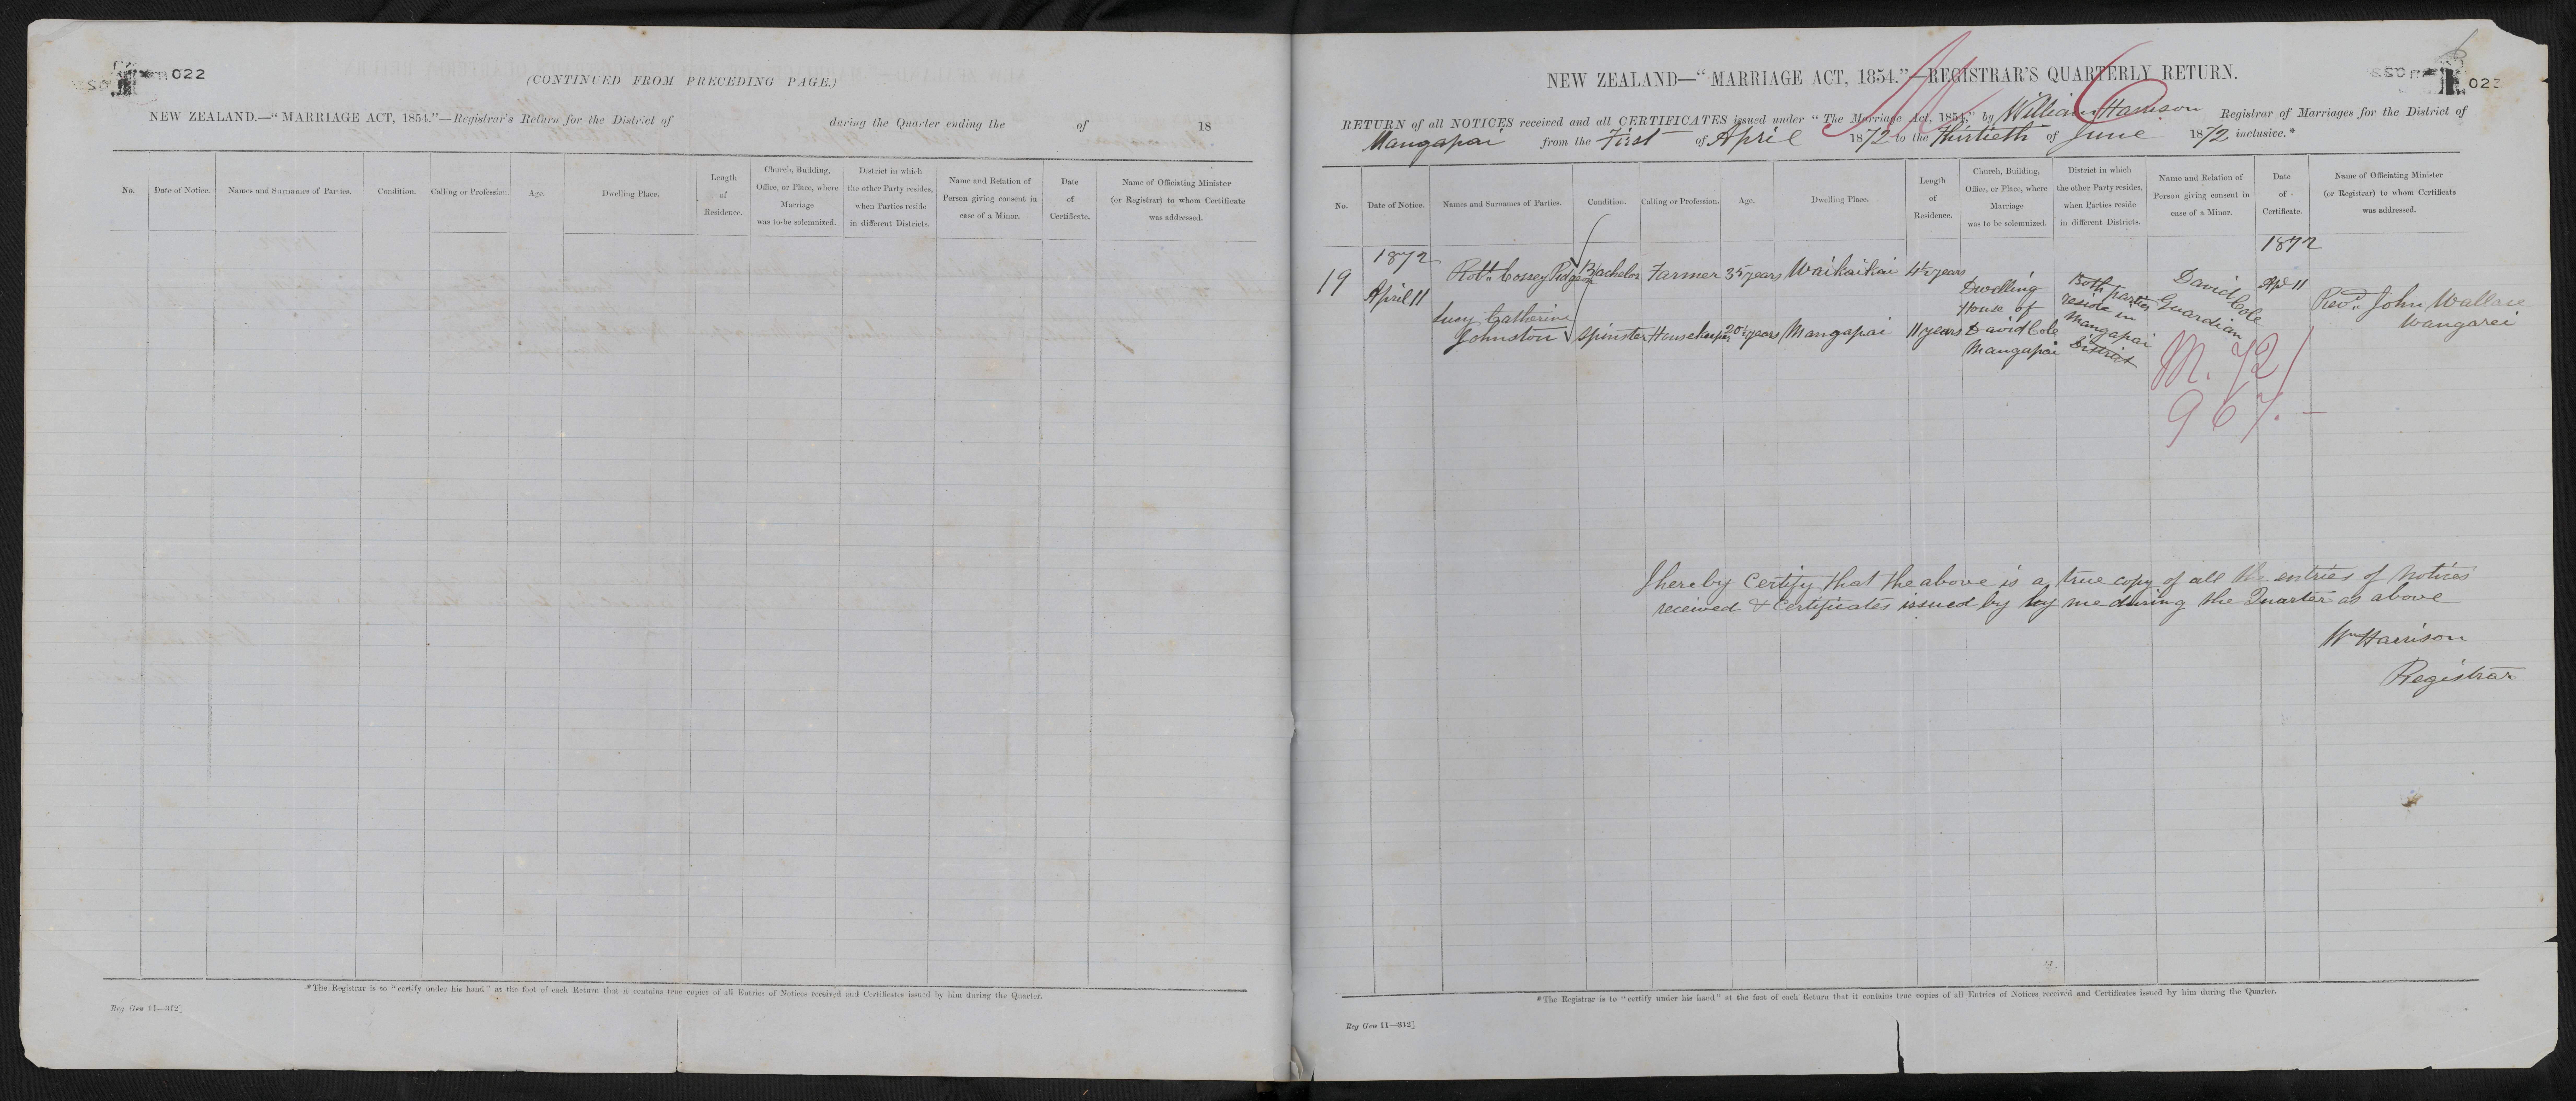 022
(CONTINUED FROM PRECEDING PAGE.)
NEW ZEALAND.—"MARRIAGE ACT, 1854."—Registrar's Return for the District of during the Quarter ending the of 18
No. Date of Notice. Names and Surnames of Parties. Condition. Calling or Profession. Age. Dwelling Place. Length of Residence. Church, Building, Office, or Place, where Marriage was to be solemnized. District in which the other Party resides, when Parties reside in different Districts. Name and Relation of Person giving consent in case of a Minor. Date of Certificate. Name of Officiating Minister (or Registrar) to whom Certificate was addressed.
*The Registrar is to "certify under his hand" at the foot of each Return that it contains true copies of all Entries of Notices received and Certificates issued by him during the Quarter.
Reg Gen 11—312]
NEW ZEALAND—"MARRIAGE ACT, 1854."—REGISTRAR'S QUARTERLY RETURN.
RETURN of all NOTICES received and all CERTIFICATES issued under "The Marriage Act, 1854," by William Harrison Registrar of Marriages for the District of
Mangapai from the First of April 1872 to the Thirtieth of June 1872 inclusive.*
No. Date of Notice. Names and Surnames of Parties. Condition. Calling or Profession. Age. Dwelling Place. Length of Residence. Church, Building, Office, or Place, where Marriage was to be solemnized. District in which the other Party resides, when Parties reside in different Districts. Name and Relation of Person giving consent in case of a Minor. Date of Certificate. Name of Officiating Minister (or Registrar) to whom Certificate was addressed.
1872 1872
19 April 11 Robt. Cossey Bachelor Farmer 35 years Waikaikai 4½ years
Lucy Catherine
Johnston Spinster Housekeeper 20½ years Mangapai 11 years
Dwelling
House of
David Cole
Mangapai
Both parties
reside in
Mangapai
District
David Cole
Guardian
Apl 11
Revd. John Wallace
Wangarei
M. 72/
967.—
I hereby Certify that the above is a true copy of all the entries of Notices
received & Certificates issued by by me during the Quarter as above
Wm Harrison
Registrar
*The Registrar is to "certify under his hand" at the foot of each Return that it contains true copies of all Entries of Notices received and Certificates issued by him during the Quarter.
Reg Gen 11—312]